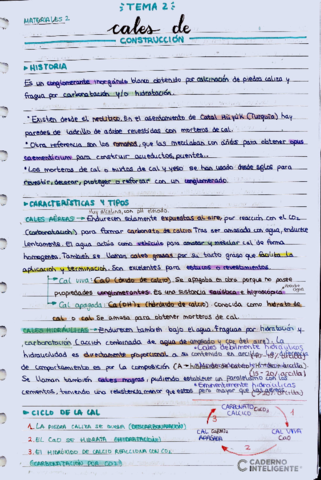 MATERIALES 2
TEMA 2
cales de
CONSTRUCCIÓN
HISTORIA
Es un conglomerante inorgánico blanco obtenido por calcinación de piedra caliza y
fragua por carbonatación y/o hidratación.
* Existen desde el neolítico. En el asentamiento de Catal Hüyük (Turquía) hay
paredes de ladrillo de adobe revestidas con morteros de cal.
* Otra referencia son los romanos, que las mezclaban con áridos para obtener opus
caementicium para construir acueductos, puentes...
* Los morteros de cal o mixtos de cal y yeso se han usado desde siglos para
revestir, decorar, proteger o reforzar con un conglomerado.
CARACTERÍSTICAS Y TIPOS
CALES AÉREAS: Endurecen solamente expuestas al aire, por reacción con el CO2
(carbonatación) para formar carbonato de calcio. Tras ser amasada con agua, endurece
lentamente. El agua actúa como vehículo para amasar y modelar cal de forma
homogénea. También se llaman cales grasas por su tacto graso que facilita la
aplicación y terminación. Son excelentes para estucos o revestimientos.
Cal viva: CaO (óxido de calcio). Se apaga en obra porque no posee
propiedades conglomerantes. Es una sustancia
Cal apagada: Ca(OH)2 (hidróxido de calcio). Conocida como hidrato de
cal o cal. Se amasa para obtener morteros de cal.
CALES HIDRÁULICAS: Endurecen también bajo el agua. Fraguan por hidratación y
carbonatación (acción combinada de agua de amasado y CO2 del aire). La
Cales débilmente hidráulicas
hidraulicidad es directamente proporcional a su contenido en arcilla. La diferencia
de comportamiento es por la composición
(15-20% arcilla)
Se llaman también cales magras, pudiendo establecer un paralelismo con los
Eminentemente hidráulicas
cementos, teniendo una resistencia menor que estos para mayor que las aéreas.
CICLO DE LA CAL
1. LA PIEDRA CALIZA SE QUEMA (DESCARBONATACIÓN)
2. EL CAO SE HIDRATA (HIDRATACIÓN)
3. EL HIDRÓXIDO DE CALCIO REACCIONA CON CO2
(CARBONATACIÓN POR CO2)
CARBONATO CaCO3
CÁLCICO
3
1
CAL
APAGADA
CAL VIVA
CaO
2
CADERNO
INTELIGENTE